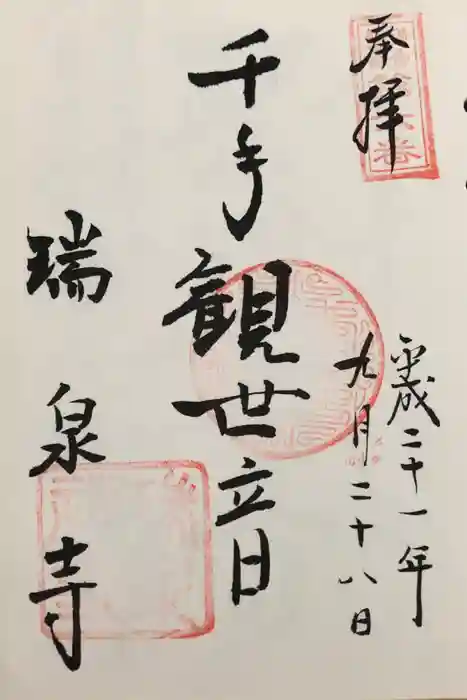 奉拝
平成二十一年
九月二十八日
千手観世音
瑞泉寺